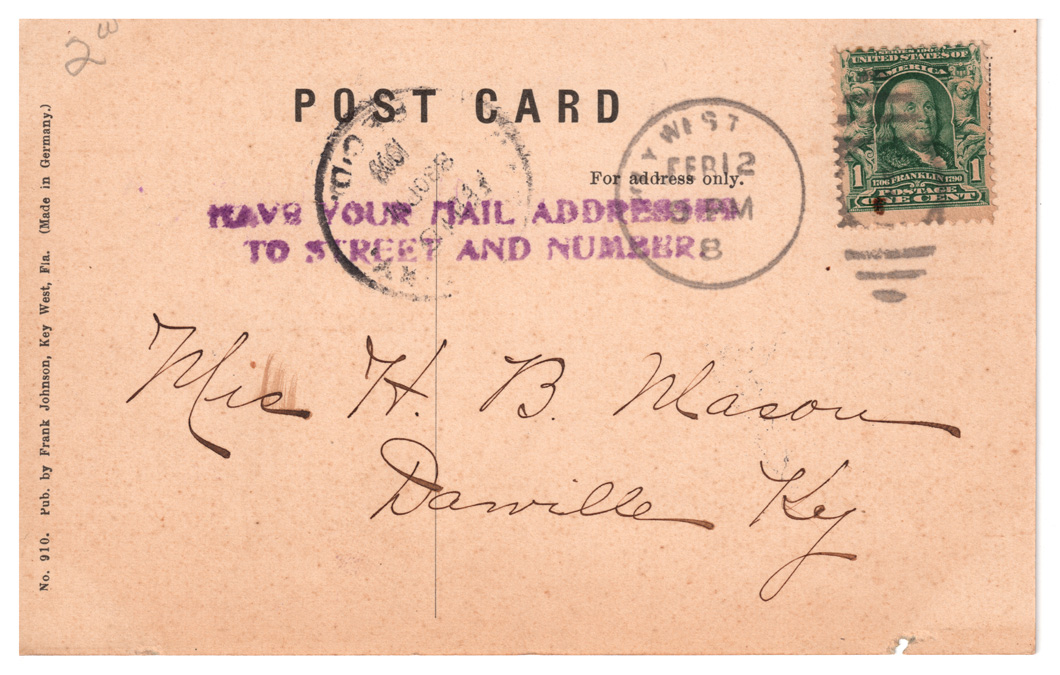 2
POST CARD
For address only.
KEY WEST
FEB 12
PM
8
REC'D.
1908
HAVE YOUR MAIL ADDRESSED
TO STREET AND NUMBER.
SERIES 1902
UNITED STATES OF
AMERICA
1 1706 FRANKLIN 1790 1
POSTAGE
ONE CENT
Mrs H. B. Mason
Danville Ky
No. 910. Pub. by Frank Johnson, Key West, Fla. (Made in Germany.)